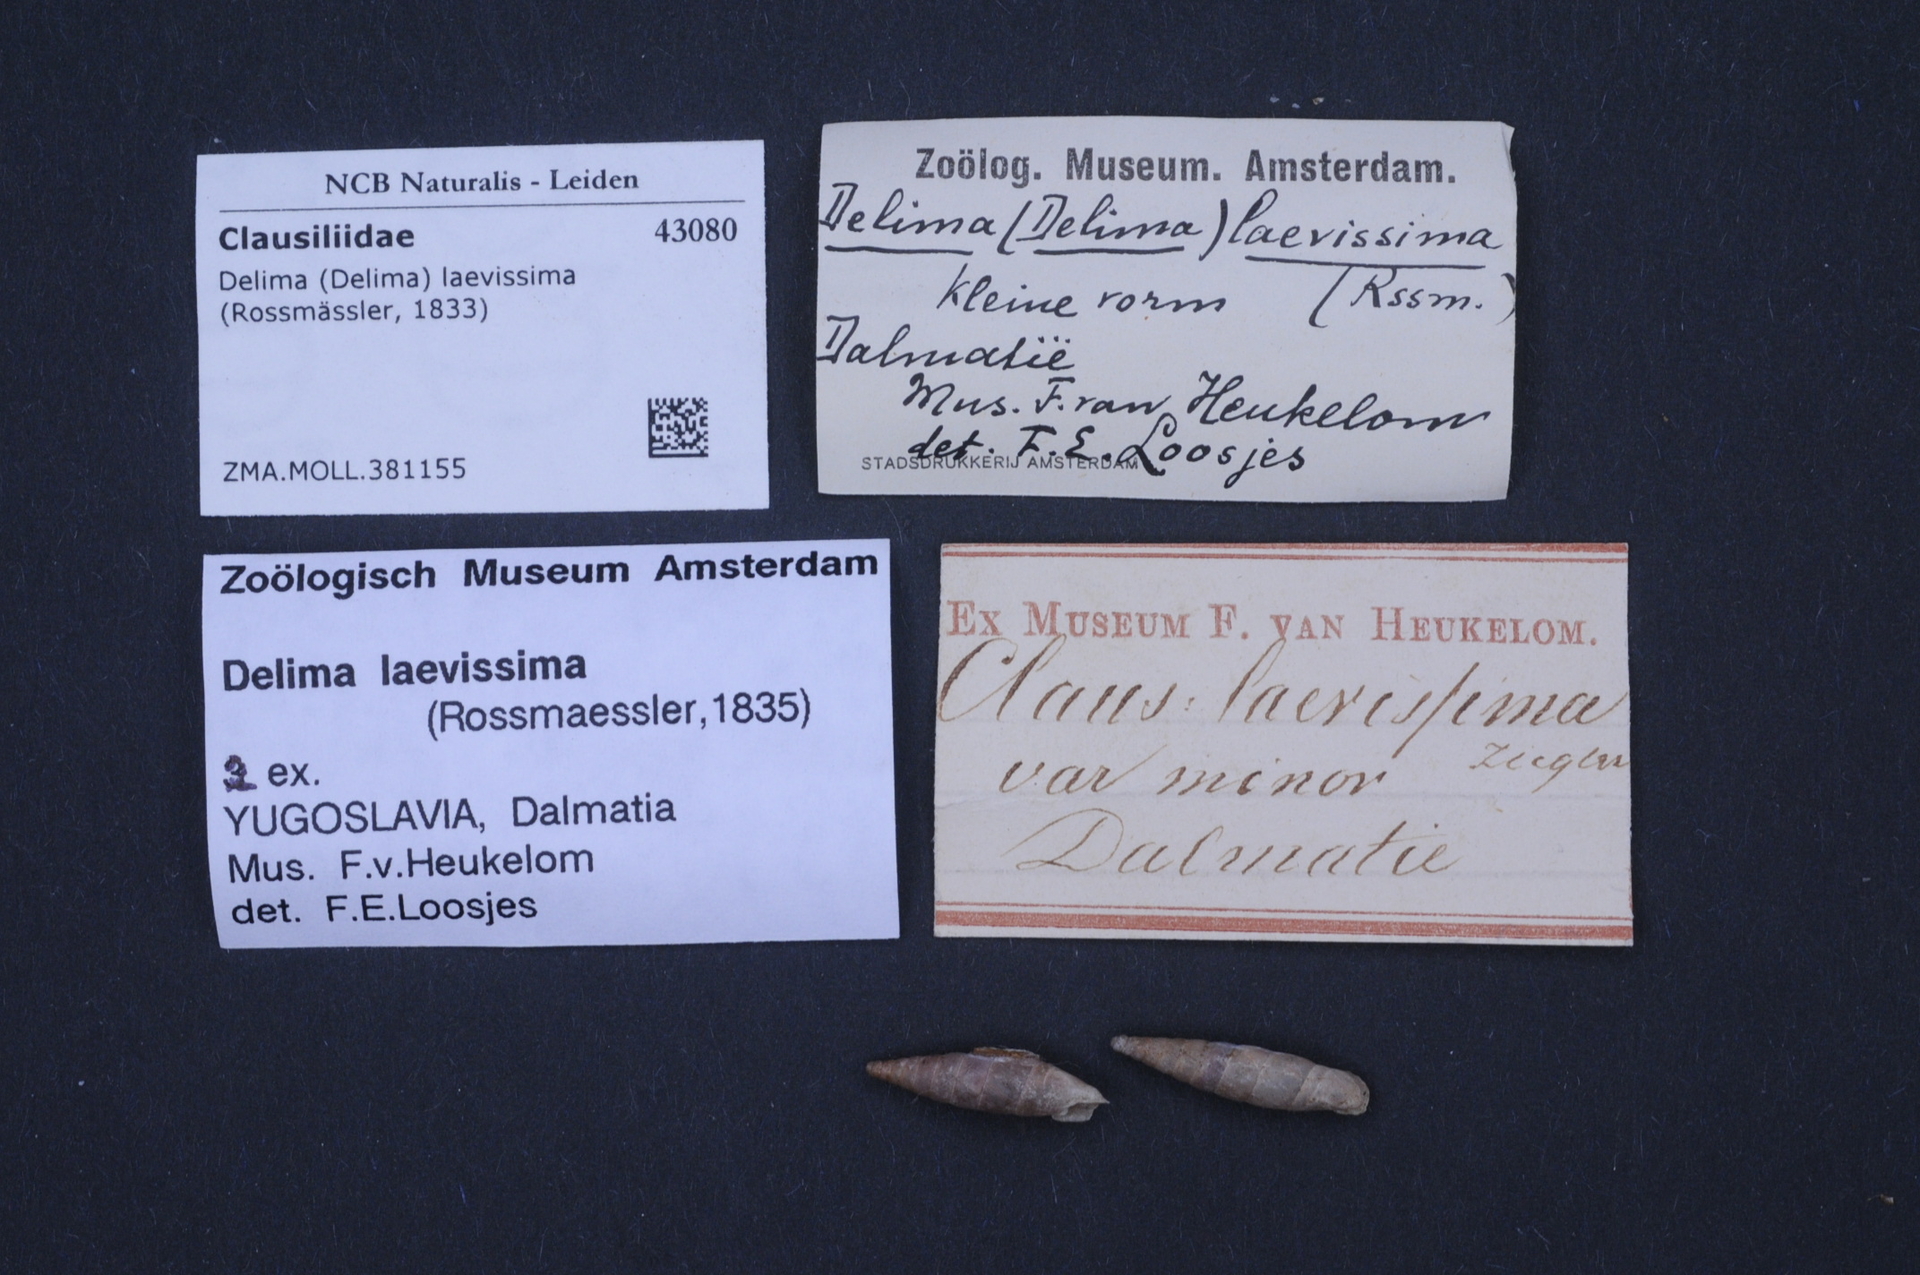 NCB Naturalis - Leiden
Clausiliidae 43080
Delima (Delima) laevissima
(Rossmässler, 1833)
ZMA.MOLL.381155
Zoölog. Museum. Amsterdam.
Delima (Delima) laevissima
kleine vorm (Rssm.)
Dalmatië
Mus. F. van Heukelom
det. F. E. Loosjes
STADSDRUKKERIJ AMSTERDAM
Zoölogisch Museum Amsterdam
Delima laevissima
(Rossmaessler,1835)
ex.
YUGOSLAVIA, Dalmatia
Mus. F.v.Heukelom
det. F.E.Loosjes
EX MUSEUM F. VAN HEUKELOM.
Claus: laevissima
var minor Ziegler
Dalmatie